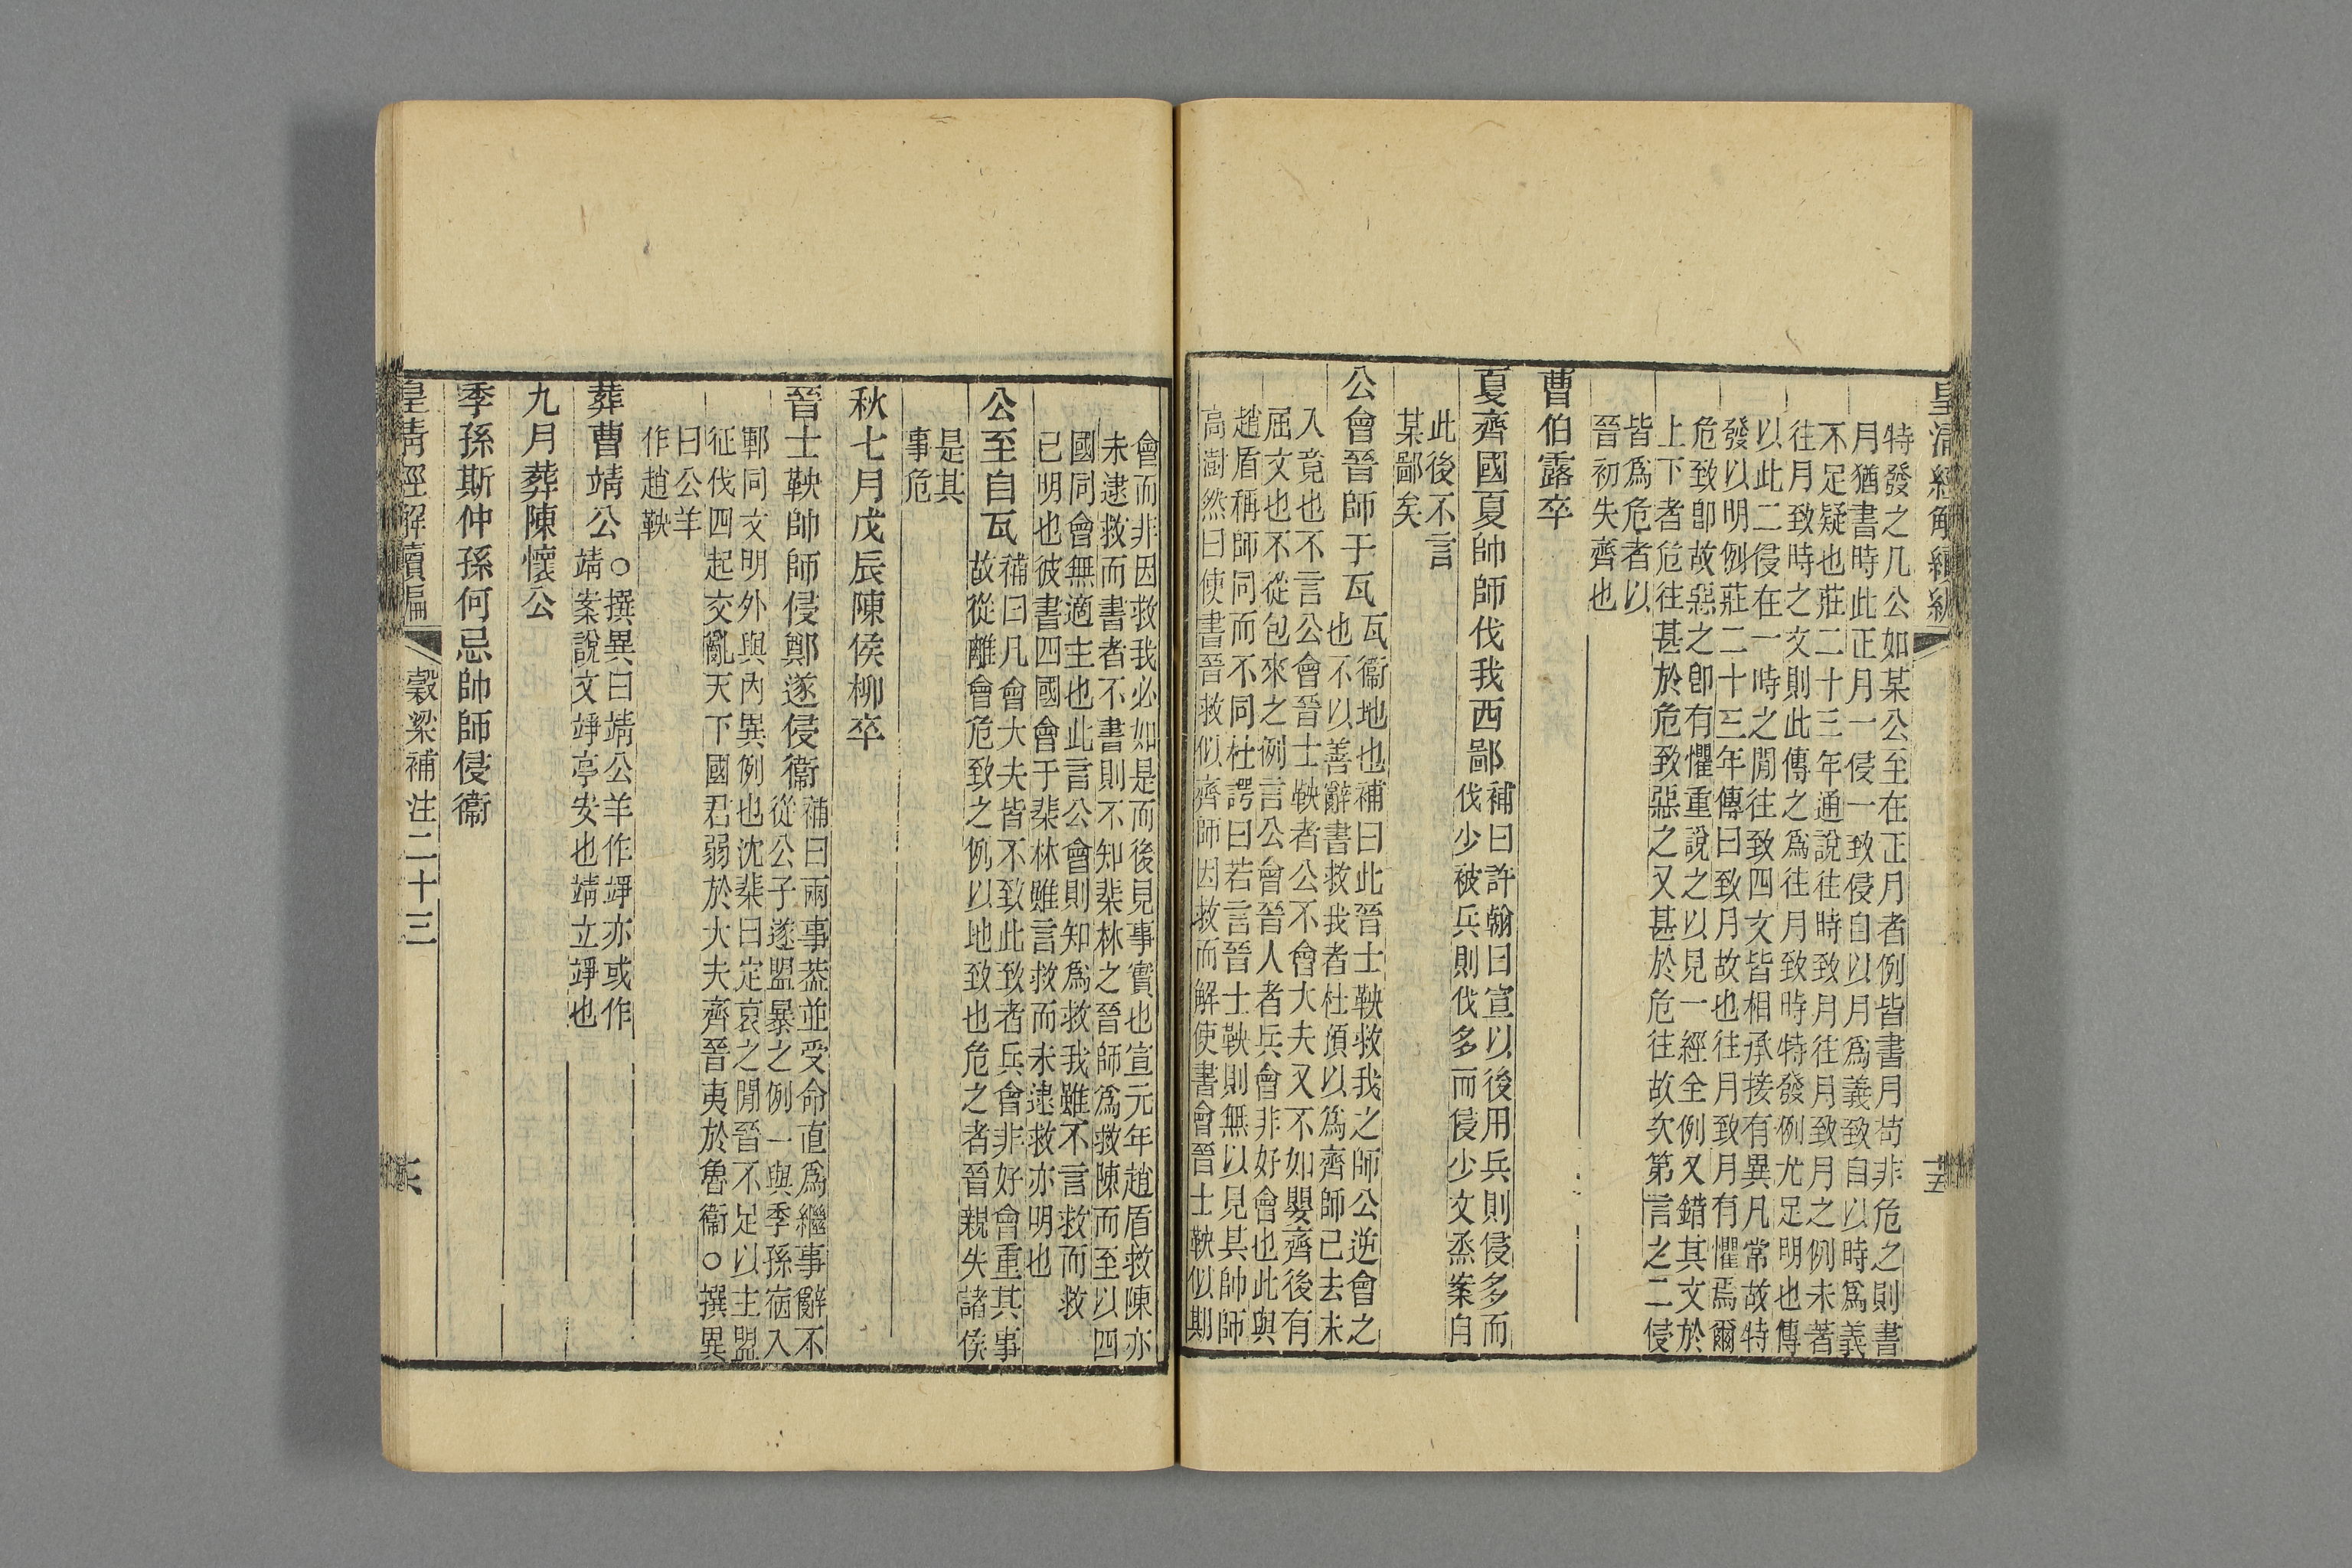 皇清經解續編
特發之凡公如某公至在正月者例皆書月苟非危之則書
月猶書時此正月一侵一致侵自以月爲義致自以時爲義
不足疑也莊二十三年通說往時致月往月致月之例未著
往月致時之文則此傳之爲往月致時特發例尤足明也傳
以此二侵在一時之閒往致四文皆相承接有異凡常故特
發以明例莊二十三年傳曰致月故也往月致月有懼焉爾
危致卽故惡之卽有懼重說之以見一經全例又錯其文於
上下者危往甚於危致惡之又甚於危往故次第言之二侵
皆爲危者以
晉初失齊也
曹伯露卒
夏齊國夏帥師伐我西鄙
補曰許翰曰宣以後用兵則侵多而
伐少被兵則伐多而侵少文烝案自
此後不言
某鄙矣
公會晉師于瓦
瓦衞地也補曰此晉士鞅救我之師公逆會之
也不以善辭書救我者杜預以爲齊師已去未
入竟也不言公會晉士鞅者公不會大夫又不如嬰齊後有
屈文也不從包來之例言公會晉人者兵會非好會也此與
趙盾稱師同而不同杜諤曰若言晉士鞅則無以見其帥師
高澍然曰使書晉救似齊師因救而解使書會晉士鞅似期
會而非因救我必如是而後見事實也宣元年趙盾救陳亦
未逮救而書者不書則不知棐林之晉師爲救陳而至以四
國同會無適主也此言公會則知爲救我雖不言救而救
已明也彼書四國會于棐林雖言救而未逮救亦明也
公至自瓦
補曰凡會大夫皆不致此致者兵會非好會重其事
故從離會危致之例以地致也危之者晉親失諸侯
是其
事危
秋七月戊辰陳侯柳卒
晉士鞅帥師侵鄭遂侵衞
補曰兩事葢並受命直爲繼事辭不
從公子遂盟暴之例一與季孫宿入
鄆同文明外與內異例也沈棐曰定哀之閒晉不足以主盟
征伐四起交亂天下國君弱於大夫齊晉夷於魯衞○撰異
曰公羊
作趙鞅
葬曹靖公
○撰異曰靖公羊作竫亦或作
靖案說文竫亭安也靖立竫也
九月葬陳懷公
季孫斯仲孫何忌帥師侵衞
皇清經解續編
穀梁補注二十三